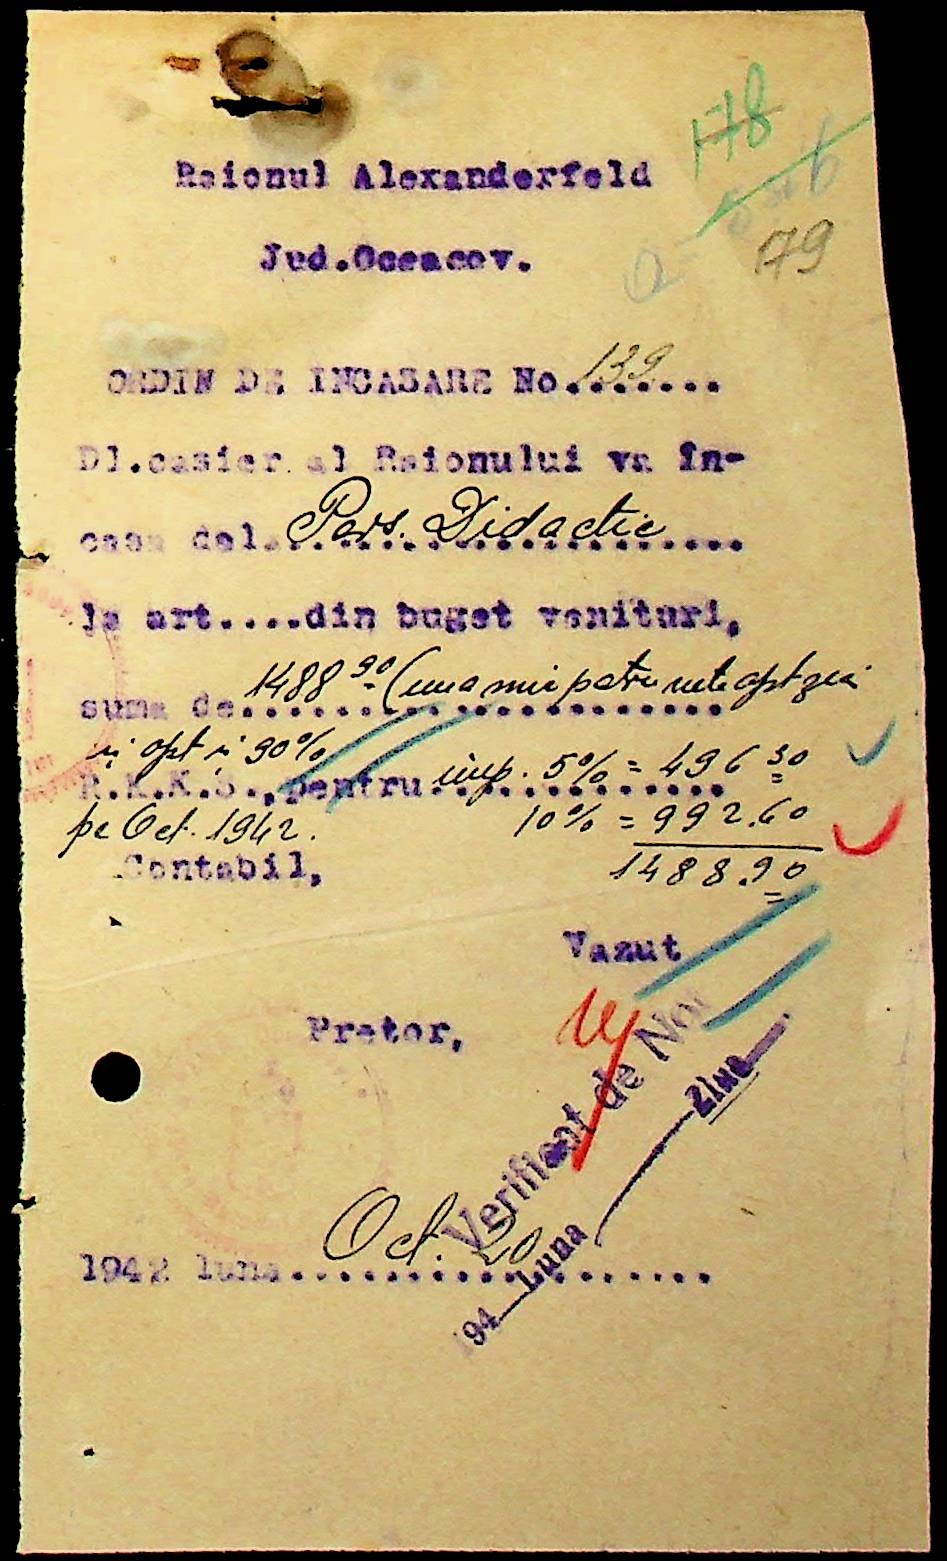 178
179
Raionul Alexanderfeld
Jud.Oceacov.
ORDIN DE INCASARE No.139......
Dl.casier al Raionului va în-
casa del. Pers. Didactic
la art....din buget venituri,
suma de 1488 90 (una mie patru sute optzeci
și opt și 90%
R.K.K.S., pentru imp. 5% = 496 30
pe Oct. 1942. 10% = 992.60
1488.90
Contabil,
Vazut
Pretor,
Verificat de Noi
194 Luna Ziua
1942 luna Oct. 20